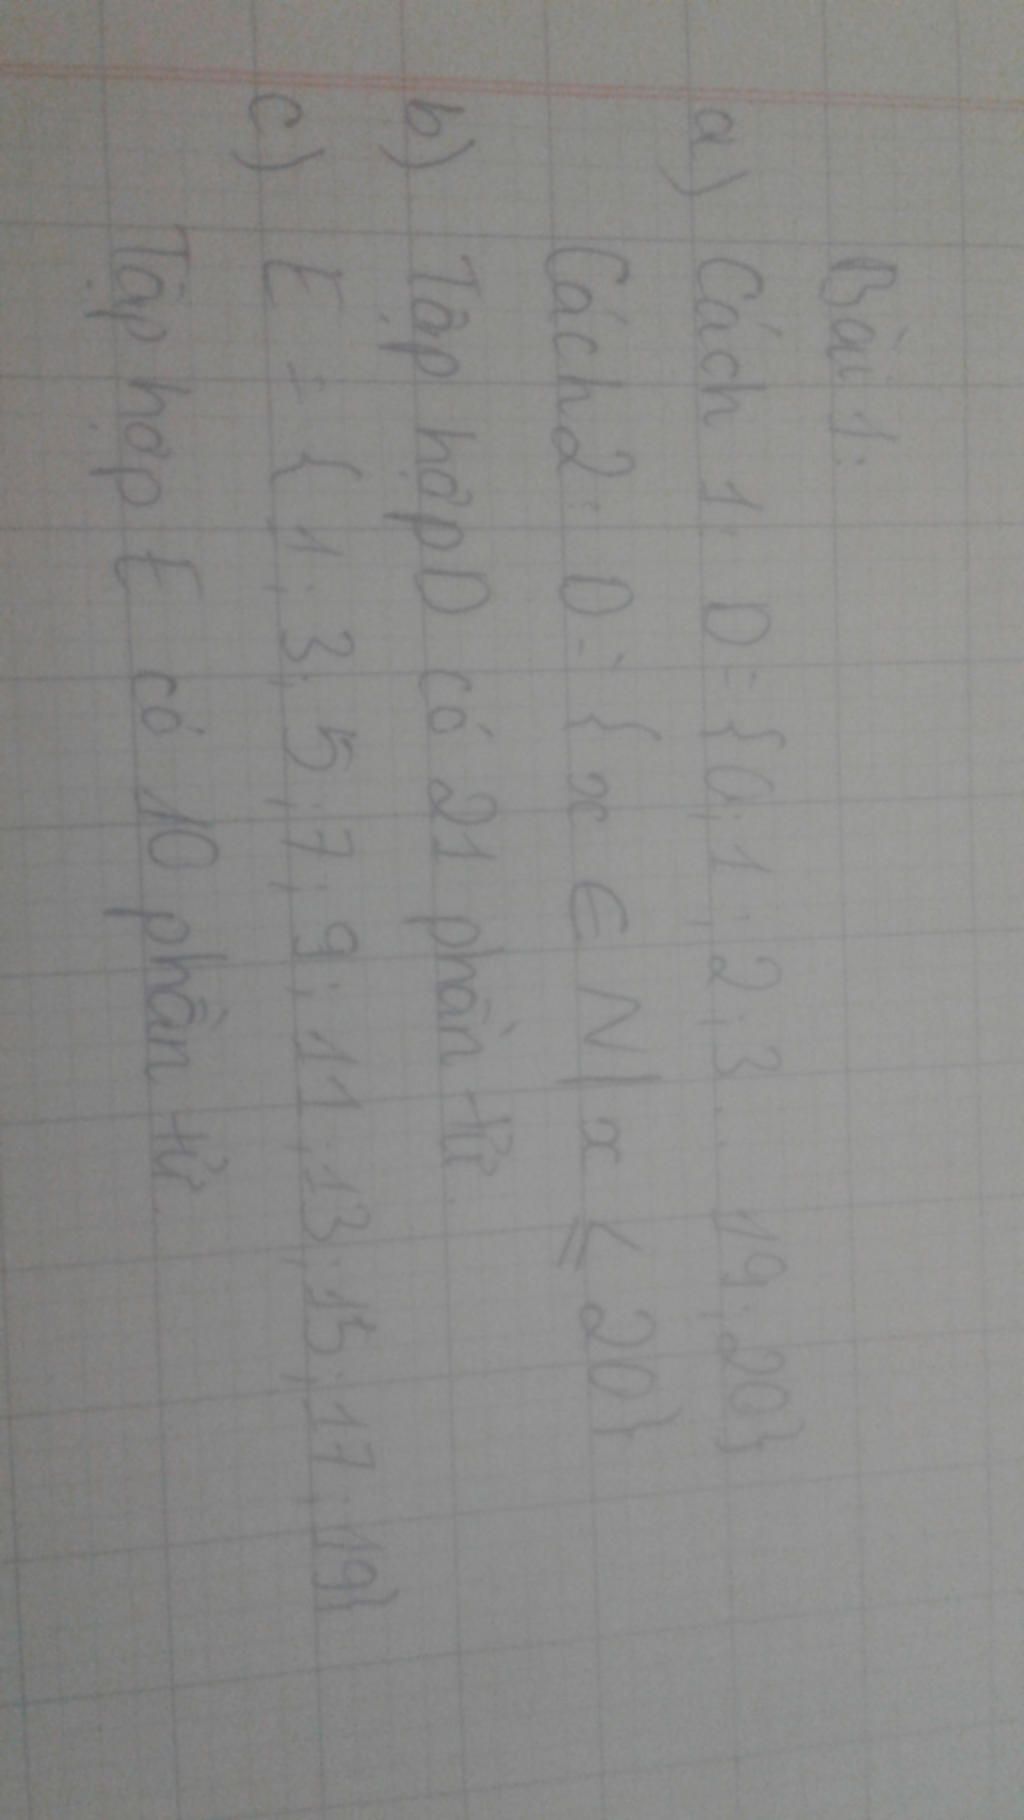 Bài 1:
a) Cách 1: D = {0; 1; 2; 3... 19; 20}
Cách 2: D = {x ∈ N | x ≤ 20}
b) Tập hợp D có 21 phần tử
c) E = {1; 3; 5; 7; 9; 11; 13; 15; 17; 19}
Tập hợp E có 10 phần tử